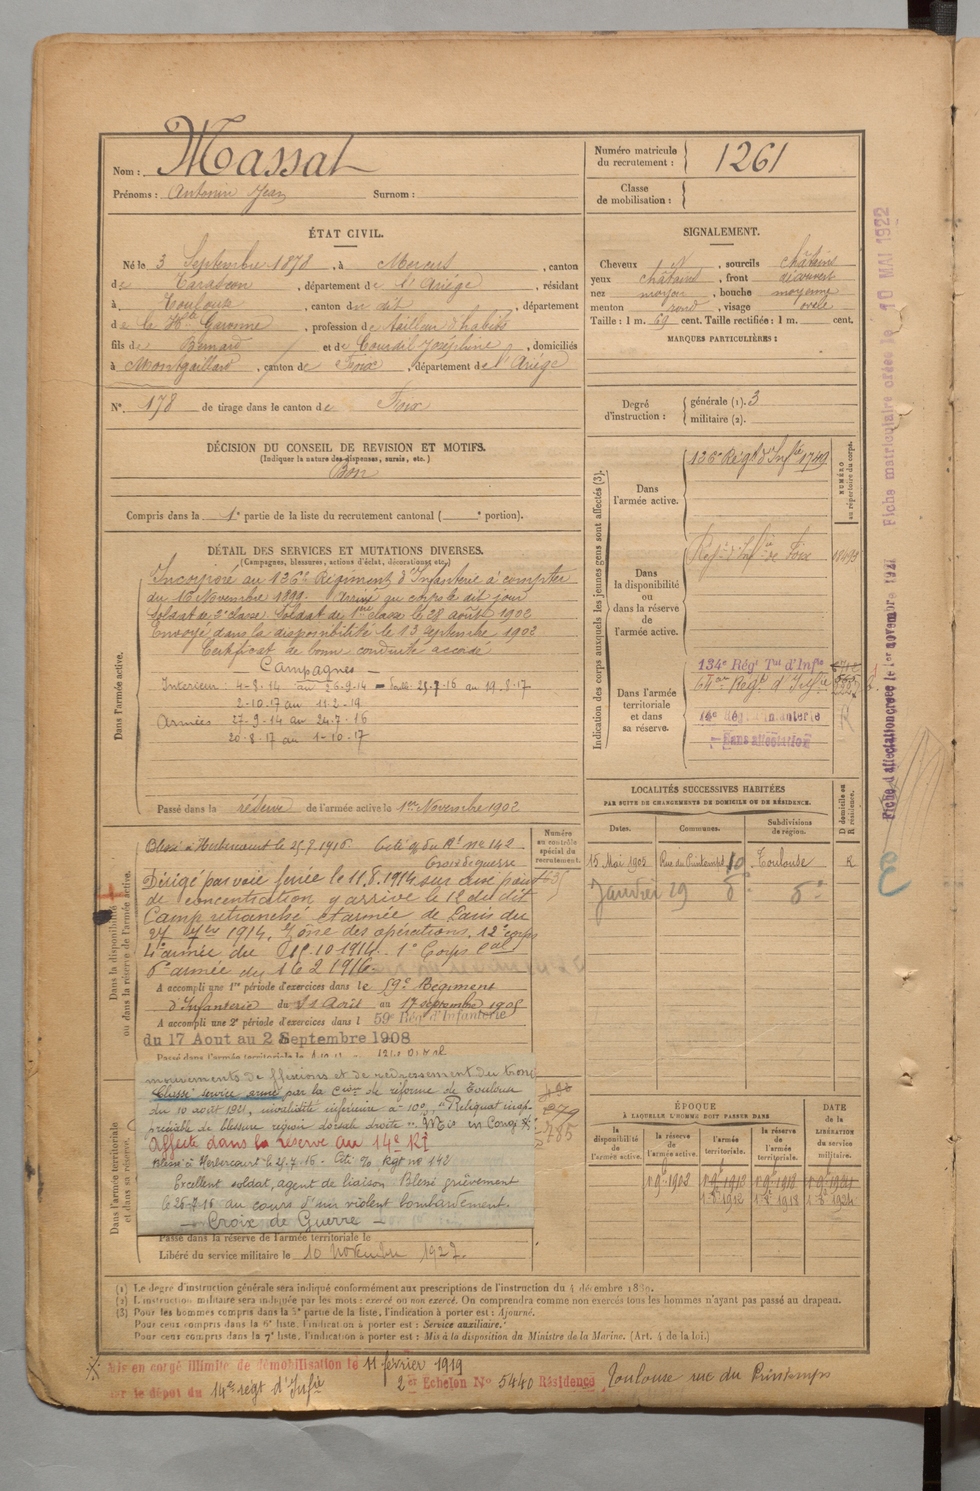 Nom : Massat
Prénoms : Antonin Jean Surnom :
Numéro matricule du recrutement : 1261
Classe de mobilisation :
ÉTAT CIVIL.
Né le 3 Septembre 1878, à Mercus, canton
de Tarascon, département de l'Ariège, résidant
à Toulouse, canton du dit, département
de la Hte Garonne, profession de tailleur d'habits
fils de Bernard et de Courdil Joséphine, domiciliés
à Montgaillard, canton de Foix, département de l'Ariège
N° 178 de tirage dans le canton de Foix
SIGNALEMENT.
Cheveux N, sourcils châtains
yeux châtains, front découvert
nez moyen, bouche moyenne
menton rond, visage ovale
Taille : 1 m. 69 cent. Taille rectifiée : 1 m. cent.
MARQUES PARTICULIÈRES :
Degré d'instruction : générale (1). 3
militaire (2).
DÉCISION DU CONSEIL DE REVISION ET MOTIFS.
(Indiquer la nature des dispenses, sursis, etc.)
Bon
Compris dans la 1e partie de la liste du recrutement cantonal ( e portion).
DÉTAIL DES SERVICES ET MUTATIONS DIVERSES.
(Campagnes, blessures, actions d'éclat, décorations, etc.)
Dans l'armée active.
Incorporé au 136e Régiment d'Infanterie à compter
du 16 Novembre 1899. Arrivé au corps le dit jour
Soldat de 2e classe. Soldat de 1ère classe le 28 août 1902
Envoyé dans la disponibilité le 13 septembre 1902
Certificat de bonne conduite accordé
Campagnes
Intérieur 4-8-14 au 26-9-14 25-7-16 au 19-8-17
2-10-17 au 11-2-19
Armées 27-9-14 au 24-7-16
20-8-17 au 1-10-17
Passé dans la réserve de l'armée active le 1er Novembre 1902
Indication des corps auxquels les jeunes gens sont affectés (3).
NUMÉRO au répertoire du corps.
Dans l'armée active.
136e Régt d'Infie 1749
Dans la disponibilité ou dans la réserve de l'armée active.
Régt d'Infie de Foix
Dans l'armée territoriale et dans sa réserve.
134e Régt Tal d'Infie
14e Rég Infanterie
Sans affectation
LOCALITÉS SUCCESSIVES HABITÉES
PAR SUITE DE CHANGEMENTS DE DOMICILE OU DE RÉSIDENCE.
Dates. Communes. Subdivisions de région. D domicile ou R résidence.
15 Mai 1902 Rue du Printemps 10 Toulouse R
Janvier 29 do do
Dans la disponibilité ou dans la réserve de l'armée active.
Numéro au contrôle spécial du recrutement.
Blessé à Herbécourt le 25.7.1916 Cité O du Rt no 142
Croix de guerre
Dirigé par voie ferrée le 11.8.1914 sur un point
de concentration y arrive le 12 du dit
Camp retranché et armée de Paris du
27 7bre 1914. Zone des opérations. 12e corps
4e armée du 15.10.1914. 1er Corps Cal
6e armée du 16 2 1916.
A accompli une 1re période d'exercices dans le 59e Régiment
d'Infanterie du 21 Août au 17 septembre 1905
A accompli une 2e période d'exercices dans l 59e Rég. d'Infanterie
du 17 Aout au 2 Septembre 1908
Dans l'armée territoriale et dans sa réserve.
mouvements de flexions et de redressement du tronc
Classé service armé par la Cion de réforme de Toulouse
du 10 août 1921, invalidité inférieure à 10% "Reliquat inap-
préciable de blessure région dorsale droite" Mis en Congé
Affecté dans la réserve au 14e RI
Blessé à Herbécourt le 25.7.16 - Cité O/ Rgt no 142
Excellent soldat, agent de liaison. Blessé grièvement
le 25-7-16 au cours d'un violent bombardement.
- Croix de Guerre -
Passé dans la réserve de l'armée territoriale le
Libéré du service militaire le 10 novembre 1927.
785
ÉPOQUE
À LAQUELLE L'HOMME DOIT PASSER DANS
DATE DE LA LIBÉRATION du service militaire.
la disponibilité de l'armée active. la réserve de l'armée active. l'armée territoriale. la réserve de l'armée territoriale.
1 9e 1902 1 9e 1912 1 9e 1918 1 9e 1924
1 8e 1912 1 8e 1918 1 8e 1924
(1) Le degré d'instruction générale sera indiqué conformément aux prescriptions de l'instruction du 4 décembre 1889.
(2) L'instruction militaire sera indiquée par les mots : exercé ou non exercé. On comprendra comme non exercés tous les hommes n'ayant pas passé au drapeau.
(3) Pour les hommes compris dans la 5e partie de la liste, l'indication à porter est : Ajourné.
Pour ceux compris dans la 6e liste, l'indication à porter est : Service auxiliaire.
Pour ceux compris dans la 7e liste, l'indication à porter est : Mis à la disposition du Ministre de la Marine. (Art. 4 de la loi.)
Mis en congé illimité de démobilisation le 11 février 1919
par le dépôt du 14e régt d'Infie 2er Echelon No 5440 Résidence Toulouse rue du Printemps
Fiche d'affectation créée le 1er novembre 1927 Fiche matriculaire créée le 10 MAI 1922